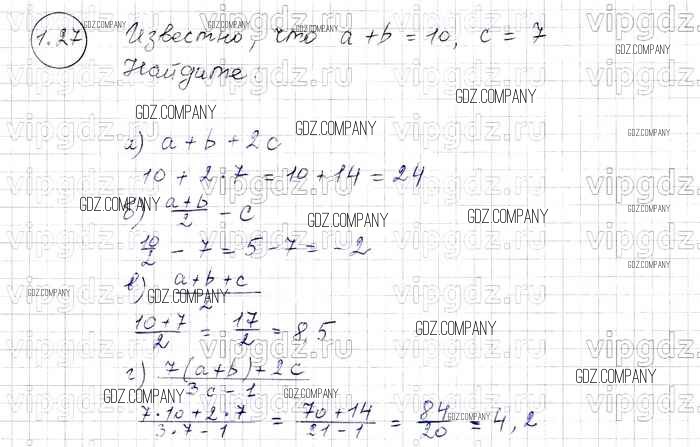 1.27 Известно, что a + b = 10, c = 7
Найдите:
а) a + b + 2c
10 + 2·7 = 10 + 14 = 24
б) (a+b)/2 − c
10/2 − 7 = 5 − 7 = −2
в) (a + b + c)/2
(10+7)/2 = 17/2 = 8,5
г) (7(a+b)+2c)/(3c − 1)
(7·10 + 2·7)/(3·7 − 1) = (70 + 14)/(21 − 1) = 84/20 = 4,2
GDZ.COMPANY
vipgdz.ru